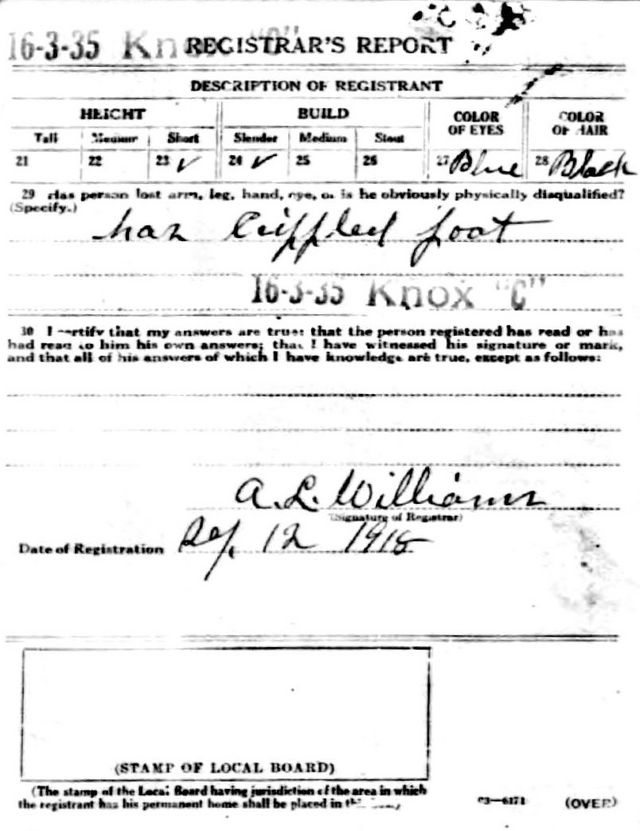 16-3-35 Knox "C"
REGISTRAR'S REPORT
DESCRIPTION OF REGISTRANT
HEIGHT BUILD COLOR OF EYES COLOR OF HAIR
Tall Medium Short Slender Medium Stout
21 22 23 ✓ 24 ✓ 25 26 27 Blue 28 Black
29 Has person lost arm, leg, hand, eye, or is he obviously physically disqualified?
(Specify.)
has Crippled foot
16-3-35 Knox "C"
30 I certify that my answers are true; that the person registered has read or has
had read to him his own answers; that I have witnessed his signature or mark,
and that all of his answers of which I have knowledge are true, except as follows:
A. L. Williams
(Signature of Registrar)
Date of Registration Sep. 12 1918
(STAMP OF LOCAL BOARD)
(The stamp of the Local Board having jurisdiction of the area in which
the registrant has his permanent home shall be placed in this
03—6171 (OVER)